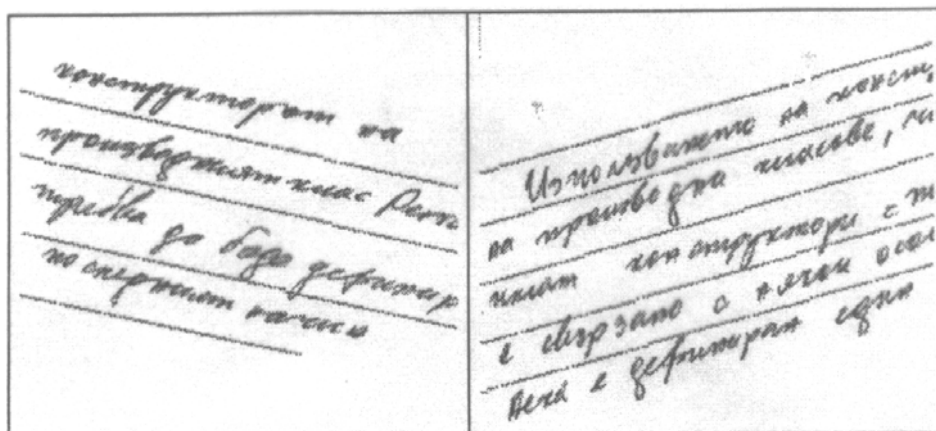 конструкторът на
производният клас Рент
трябва да бъде дефинир
по следният начин
Използването на конст
на производна класове, чи
имат конструктори с п
е свързано с някои осо
Нека е дефиниран един